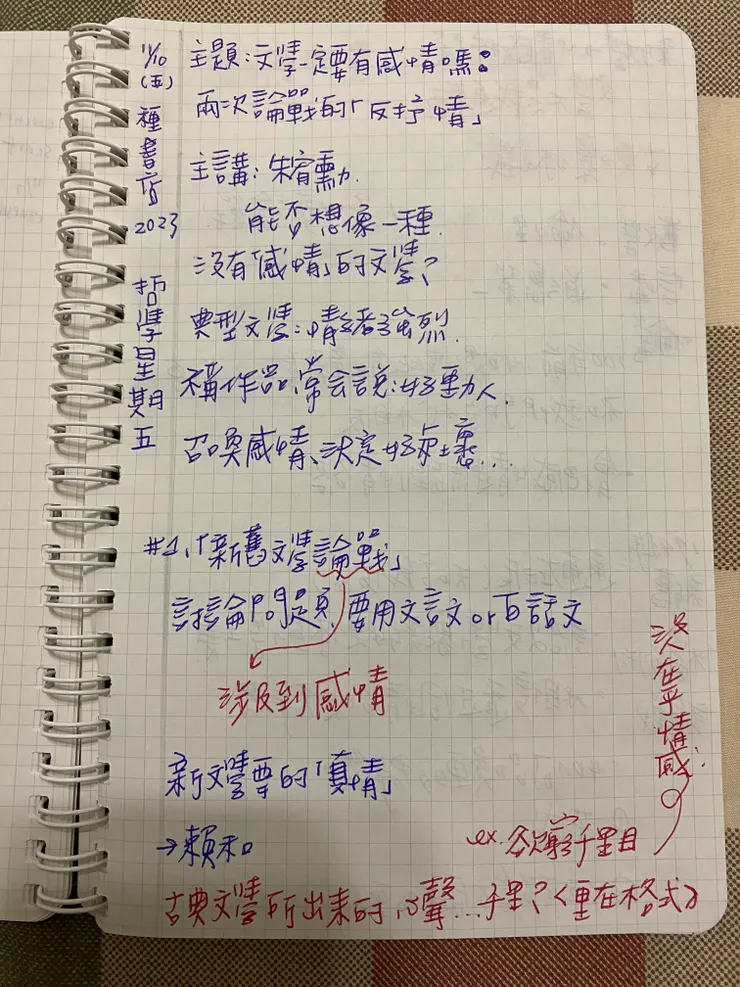 11/10
(五)
種書店
2023
哲學星期五
主題:文學一定要有感情嗎:
兩次論戰的「反抒情」
主講:朱宥勳
能不想像一種
沒有「感情」的文學?
典型文學:情緒強烈
稱作品常会說:好動人
召喚感情、決定好壞...
#1、「新舊文學論戰」
討論問題 要用文言文or白話文
涉及到感情
沒在乎情感
新文學要的「真情」
→賴和
ex. 欲窮千里目
古典文學所出來的心聲...千里?<重在格式>